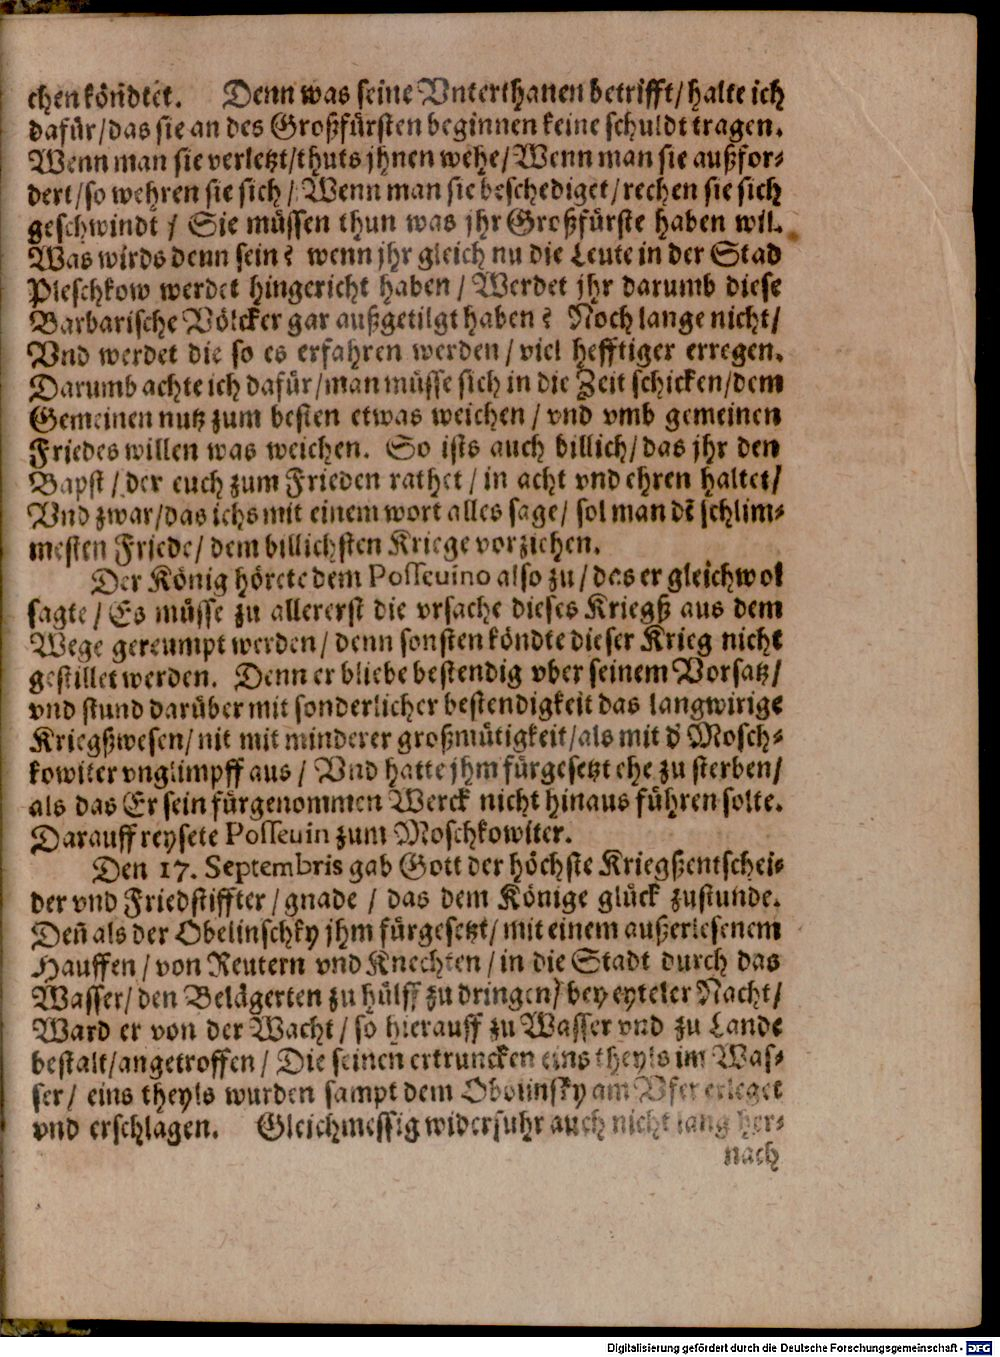 chen köñdtet. Denn was seine Vnterthanen betrifft/ halte ich
dafür/ das sie an des Großfürsten beginnen keine schuldt tragen.
Wenn man sie verletzt/ thuts jhnen wehe/ Wenn man sie außfor-
dert/ so wehren sie sich/ Wenn man sie beschediget/ rechen sie sich
geschwindt / Sie müssen thun was jhr Großfürste haben wil.
Was wirds denn sein? wenn jhr gleich nu die Leute in der Stad
Pleschkow werdet hingericht haben / Werdet jhr darumb diese
Barbarische Völcker gar außgetilgt haben? Noch lange nicht/
Vnd werdet die so es erfahren werden / viel hefftiger erregen.
Darumb achte ich dafür/ man müsse sich in die Zeit schicken/ dem
Gemeinen nutz zum besten etwas weichen / vnd vmb gemeinen
Friedes willen was weichen. So ists auch billich/ das jhr den
Bapst / der euch zum Frieden rathet / in acht vnd ehren haltet/
Vnd zwar/ das ichs mit einem wort alles sage/ sol man dē schlim-
mesten Friede/ dem billichsten Kriege vorziehen.
Der König hörete dem Posseuino also zu/ das er gleichwol
sagte / Es müsse zu allererst die vrsache dieses Kriegß aus dem
Wege gereumpt werden/ denn sonsten köndte dieser Krieg nicht
gestillet werden. Denn er bliebe bestendig vber seinem Vorsatz/
vnd stund darüber mit sonderlicher bestendigkeit das langwirige
Kriegßwesen/ nit mit minderer großmütigkeit/ als mit d̾ Mosch-
kowiter vnglimpff aus / Vnd hatte jhm fürgesetzt ehe zu sterben/
als das Er sein fürgenommen Werck nicht hinaus führen solte.
Darauff reysete Posseuin zum Moschkowiter.
Den 17. Septembris gab Gott der höchste Kriegßentschei-
der vnd Friedstiffter / gnade / das dem Könige glück zustunde.
Deñ als der Obelinschky jhm fürgesetzt/ mit einem außerlesenem
Hauffen / von Reutern vnd Knechten / in die Stadt durch das
Wasser/ den Belägerten zu hülff zu dringen/ bey eyteler Nacht/
Ward er von der Wacht / so hierauff zu Wasser vnd zu Lande
bestalt/ angetroffen / Die seinen ertruncken eins theyls im Was-
ser / eins theyls wurden sampt dem Obolinsky am Vfer erleget
vnd erschlagen. Gleichmessig widerfuhr auch nicht lang her-
nach
Digitalisierung gefördert durch die Deutsche Forschungsgemeinschaft - DFG